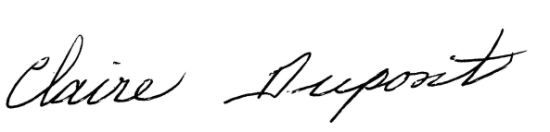 Claire Duposit